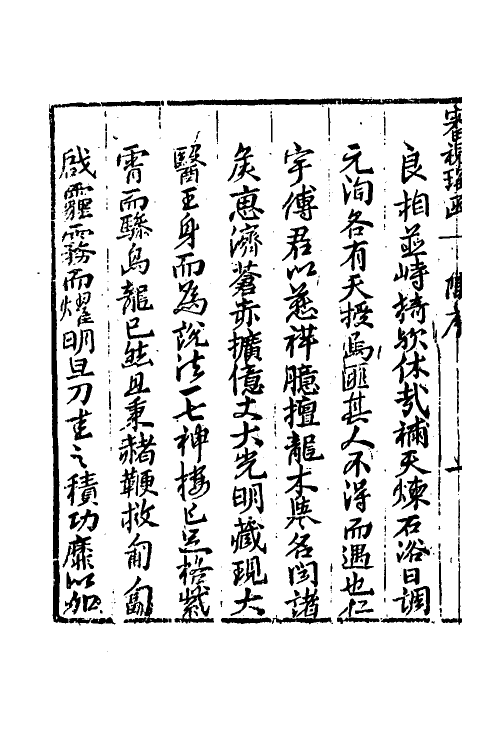 審視瑤函 序
良相並峙猗歟休哉補天煉石浴日調
元洵各有天授焉匪其人不得而遇也仁
宇傅君以慈祥臆擅龍木譽名閥諸
矦惠濟蒼赤擴億丈大光明藏現大
醫王身而為說法一七神樓已足格紫
霄而驂烏龍已然且秉赭鞭救匍匐
啟霾霧而耀明旦刀圭之積功靡以加